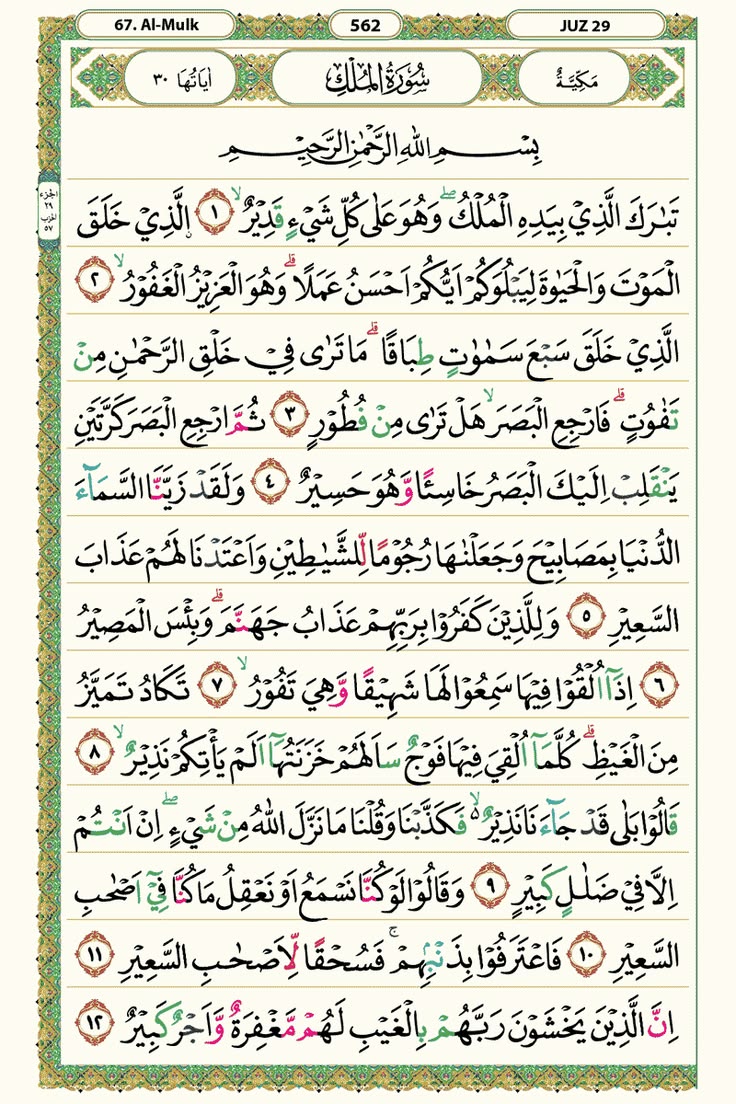 67. Al-Mulk
562
JUZ 29
اٰيَاتُهَا ٣٠
سُوْرَةُ الْمُلْكِ
مَكِّيَّةٌ
بِسْمِ اللهِ الرَّحْمٰنِ الرَّحِيْمِ
الجزء
٢٩
الحزب
٥٧
تَبٰرَكَ الَّذِيْ بِيَدِهِ الْمُلْكُ ۖ وَهُوَ عَلٰى كُلِّ شَيْءٍ قَدِيْرٌ ۙ ١ اِلَّذِيْ خَلَقَ
الْمَوْتَ وَالْحَيٰوةَ لِيَبْلُوَكُمْ اَيُّكُمْ اَحْسَنُ عَمَلًا ۗ وَهُوَ الْعَزِيْزُ الْغَفُوْرُ ۙ ٢
الَّذِيْ خَلَقَ سَبْعَ سَمٰوٰتٍ طِبَاقًا ۗ مَا تَرٰى فِيْ خَلْقِ الرَّحْمٰنِ مِنْ
تَفٰوُتٍ ۗ فَارْجِعِ الْبَصَرَ ۙ هَلْ تَرٰى مِنْ فُطُوْرٍ ٣ ثُمَّ ارْجِعِ الْبَصَرَ كَرَّتَيْنِ
يَنْقَلِبْ اِلَيْكَ الْبَصَرُ خَاسِئًا وَّهُوَ حَسِيْرٌ ٤ وَلَقَدْ زَيَّنَّا السَّمَآءَ
الدُّنْيَا بِمَصَابِيْحَ وَجَعَلْنٰهَا رُجُوْمًا لِّلشَّيٰطِيْنِ وَاَعْتَدْنَا لَهُمْ عَذَابَ
السَّعِيْرِ ٥ وَلِلَّذِيْنَ كَفَرُوْا بِرَبِّهِمْ عَذَابُ جَهَنَّمَ ۗ وَبِئْسَ الْمَصِيْرُ
٦ اِذَآ اُلْقُوْا فِيْهَا سَمِعُوْا لَهَا شَهِيْقًا وَّهِيَ تَفُوْرُ ۙ ٧ تَكَادُ تَمَيَّزُ
مِنَ الْغَيْظِ ۗ كُلَّمَآ اُلْقِيَ فِيْهَا فَوْجٌ سَاَلَهُمْ خَزَنَتُهَآ اَلَمْ يَأْتِكُمْ نَذِيْرٌ ۙ ٨
قَالُوْا بَلٰى قَدْ جَآءَنَا نَذِيْرٌ ۙ فَكَذَّبْنَا وَقُلْنَا مَا نَزَّلَ اللهُ مِنْ شَيْءٍ ۖ اِنْ اَنْتُمْ
اِلَّا فِيْ ضَلٰلٍ كَبِيْرٍ ٩ وَقَالُوْا لَوْ كُنَّا نَسْمَعُ اَوْ نَعْقِلُ مَا كُنَّا فِيْٓ اَصْحٰبِ
السَّعِيْرِ ١٠ فَاعْتَرَفُوْا بِذَنْۢبِهِمْ ۚ فَسُحْقًا لِّاَصْحٰبِ السَّعِيْرِ ١١
اِنَّ الَّذِيْنَ يَخْشَوْنَ رَبَّهُمْ بِالْغَيْبِ لَهُمْ مَّغْفِرَةٌ وَّاَجْرٌ كَبِيْرٌ ١٢